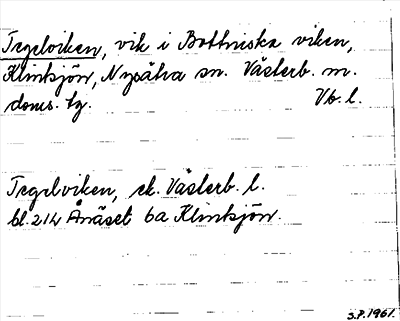 Tegelviken, vik i Bottniska viken,
Klintsjön, Nysätra sn. Västerb. m.
doms. tg. Vb. l.
Tegelviken, ek. Västerb. l.
bl. 214 Ånäset 6a Klintsjön.
S.P. 1961.